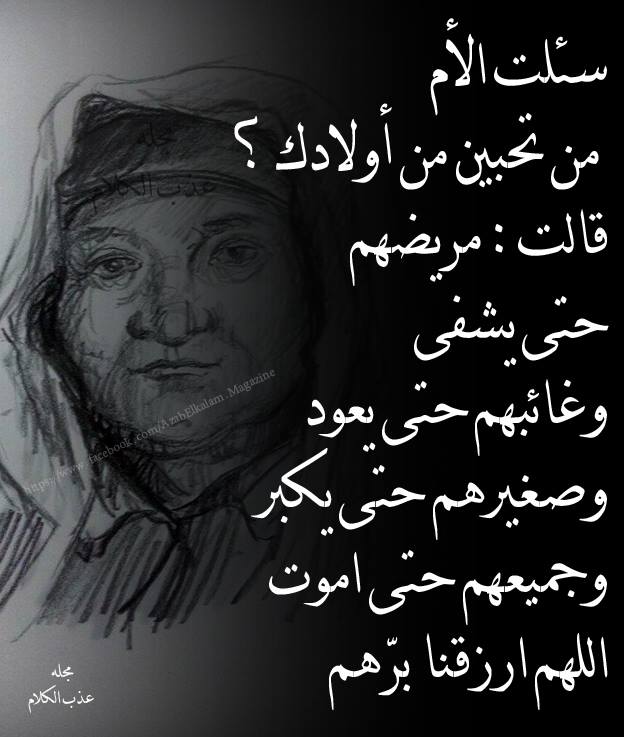 سئلت الأم
من تحبين من أولادك ؟
قالت : مريضهم
حتى يشفى
وغائبهم حتى يعود
وصغيرهم حتى يكبر
وجميعهم حتى اموت
اللهم ارزقنا برّهم
مجله
عذب الكلام
https://www.facebook.com/AzabElkalam.Magazine
مجله
عذب الكلام